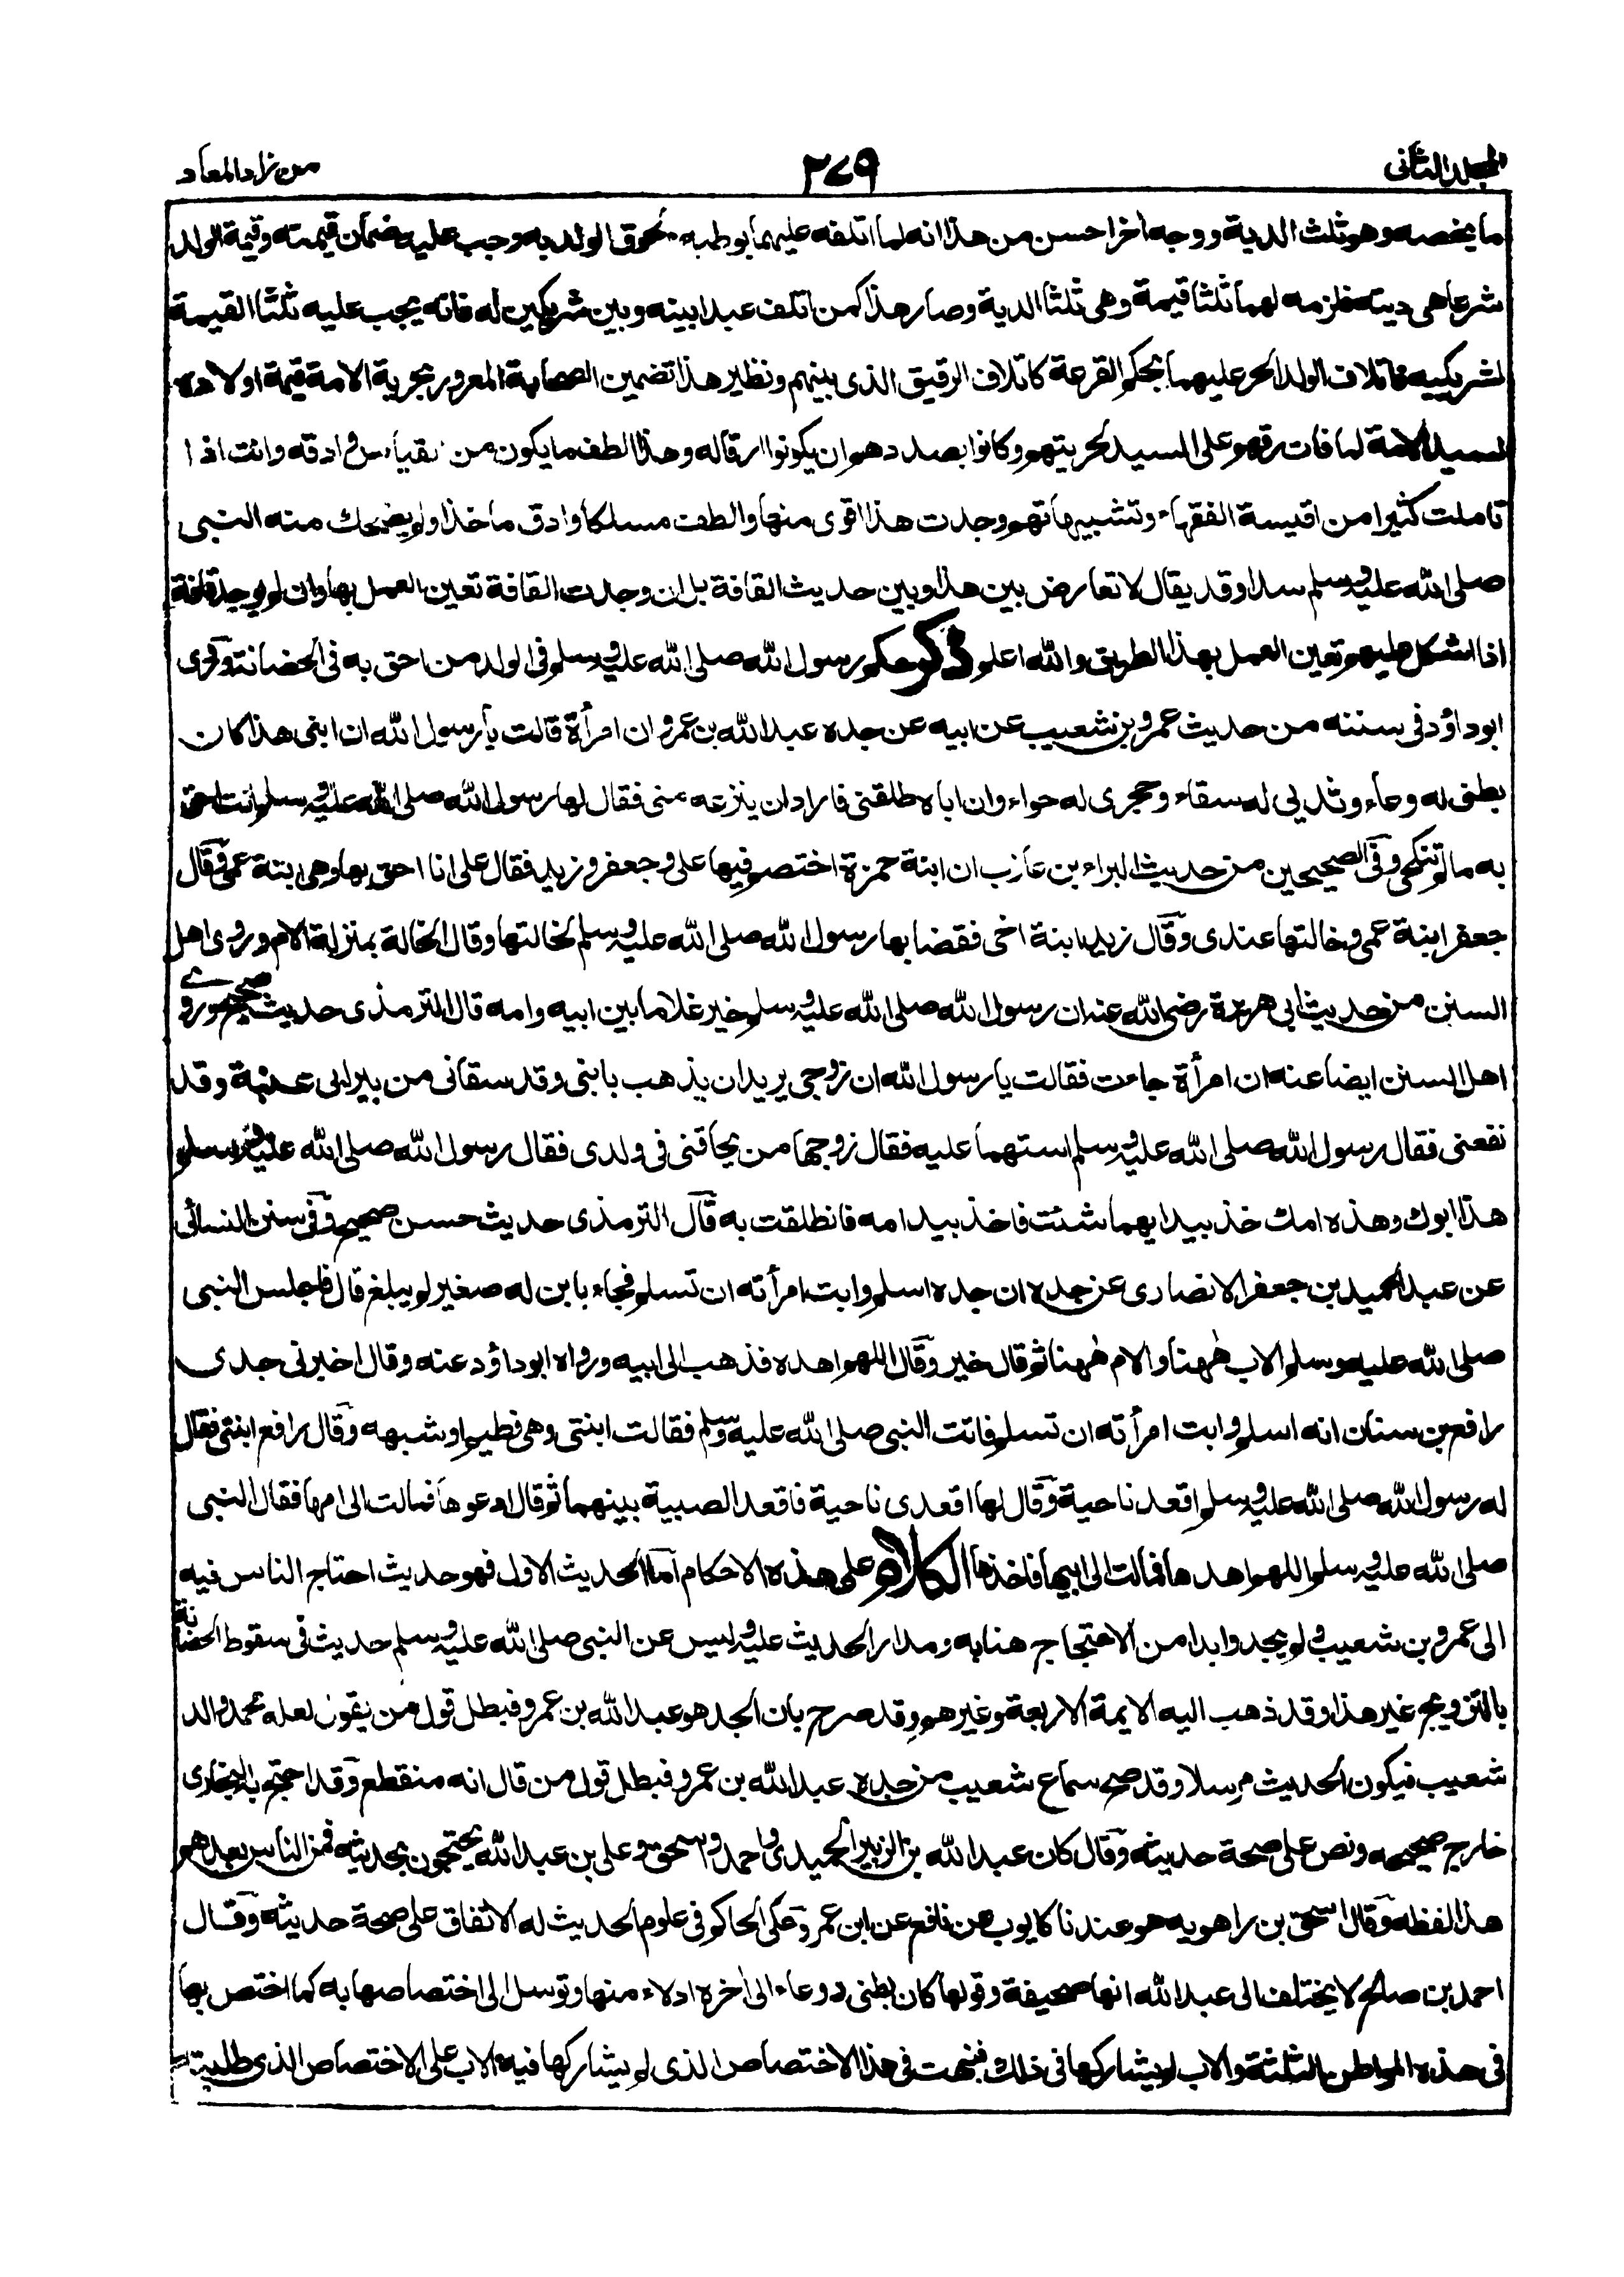 المجلد الثانى ٢٧٩ من زاد المعاد
ما يخصه وهو ثلث الدية ووجه اخر احسن من هذا انه لما اتلفه عليهما بوطيه ولحوق الولد به وجب عليه ضمان قيمته وقيمة الولد
شرعا هى ديته فلزمه لهما ثلثا قيمة وهى ثلثا الدية وصار هذا كمن اتلف عبدا بينه وبين شريكين له فانه يجب عليه ثلثا القيمة
لشريكيه فاتلاف الولد الحر عليهما بحكم القرعة كاتلاف الرقيق الذى بينهم ونظير هذا تضمين الصحابة المغرور بحرية الامة قيمة اولاده
لسيد الامة لما فات رقهم على السيد لحريتهم وكانوا بصدد هم ان يكونوا ارقاله وهذا الطف ما يكون من القياس وادقه وانت اذا
تاملت كثيرا من اقيسة الفقهاء وتشبيهاتهم وجدت هذا اقوى منها والطف مسلكا وادق ماخذا ولم يضحك منه النبى
صلى الله عليه وسلم سدا وقد يقال لا تعارض بين هذا وبين حديث القافة بل ان وجدت القافة تعين العمل بها وان لم يوجد قافة
اذا اشكل عليهم تعين العمل بهذا الطريق والله اعلم ذكر حكم رسول الله صلى الله عليه وسلم فى الولد من احق به فى الحضانة وروى
ابو داؤد فى سننه من حديث عمرو بن شعيب عن ابيه عن جده عبد الله بن عمرو ان امرأة قالت يا رسول الله ان ابنى هذا كان
بطنى له وعاء وثديى له سقاء وحجرى له حواء وان اباه طلقنى فاراد ان ينزعه منى فقال لها رسول الله صلى الله عليه وسلم انت احق
به ما لم تنكحى وفى الصحيحين من حديث البراء بن عازب ان ابنة حمزة اختصم فيها على وجعفر وزيد فقال على انا احق بها وهى ابنة عمى وقال
جعفر ابنة عمى وخالتها عندى وقال زيد ابنة اخى فقضا بها رسول الله صلى الله عليه وسلم لخالتها وقال الخالة بمنزلة الام وروى اهل
السنن من حديث ابى هريرة رضى الله عنه ان رسول الله صلى الله عليه وسلم خير غلاما بين ابيه وامه قال الترمذى حديث صحيح وروى
اهل السنن ايضا عنه ان امرأة جاءت فقالت يا رسول الله ان زوجى يريد ان يذهب بابنى وقد سقانى من بير ابى عنبة وقد
نفعنى فقال رسول الله صلى الله عليه وسلم استهما عليه فقال زوجها من يحاقنى فى ولدى فقال رسول الله صلى الله عليه وسلم
هذا ابوك وهذه امك خذ بيد ايهما شئت فاخذ بيد امه فانطلقت به قال الترمذى حديث حسن صحيح وفى سنن النسائى
عن عبد الحميد بن جعفر الانصارى عن جده ان جده اسلم وابت امرأته ان تسلم فجاء بابن له صغير لم يبلغ قال فاجلس النبى
صلى الله عليه وسلم الاب ههنا والام ههنا ثم قال خير وقال اللهم اهده فذهب الى ابيه ورواه ابو داؤد عنه وقال اخبرنى جدى
رافع بن سنان انه اسلم وابت امرأته ان تسلم فاتت النبى صلى الله عليه وسلم فقالت ابنتى وهى فطيم او شبهه وقال رافع ابنتى فقال
له رسول الله صلى الله عليه وسلم اقعد ناحية وقال لها اقعدى ناحية فاقعد الصبية بينهما ثم قال ادعوها فمالت الى امها فقال النبى
صلى الله عليه وسلم اللهم اهدها فمالت الى ابيها فاخذها الكلام على هذه الاحكام اما الحديث الاول فهو حديث احتاج الناس فيه
الى عمرو بن شعيب ولم يجدوا بدا من الاحتجاج هنا به ومدار الحديث عليه وليس عن النبى صلى الله عليه وسلم حديث فى سقوط الحضانة
بالتزويج غير هذا وقد ذهب اليه الايمة الاربعة وغيرهم وقد صرح بان الجد هو عبد الله بن عمرو فبطل قول من يقول لعله محمد والد
شعيب فيكون الحديث مرسلا وقد صح سماع شعيب من جده عبد الله بن عمرو فبطل قول من قال انه منقطع وقد احتج به البخارى
خارج صحيحه ونص على صحة حديثه وقال كان عبد الله بن الزبير الحميدى واحمد واسحق وعلى بن عبد الله يحتجون بحديثه فمن الناس بعدهم
هذا لفظه وقال اسحق بن راهويه هو عندنا كايوب عن نافع عن ابن عمر وحكى الحاكم فى علوم الحديث له الاتفاق على صحة حديثه وقال
احمد بن صالح لا يختلف الى عبد الله انها صحيفة وقولها كان بطنى وعاء الى اخره ادلاء منها وتوسل الى اختصاصها به كما اختص بها
فى هذه المواطن الثلثة والاب لم يشاركها فى ذلك فنبهت فى هذا الاختصاص الذى لم يشاركها فيه الاب على الاختصاص الذى طلبته